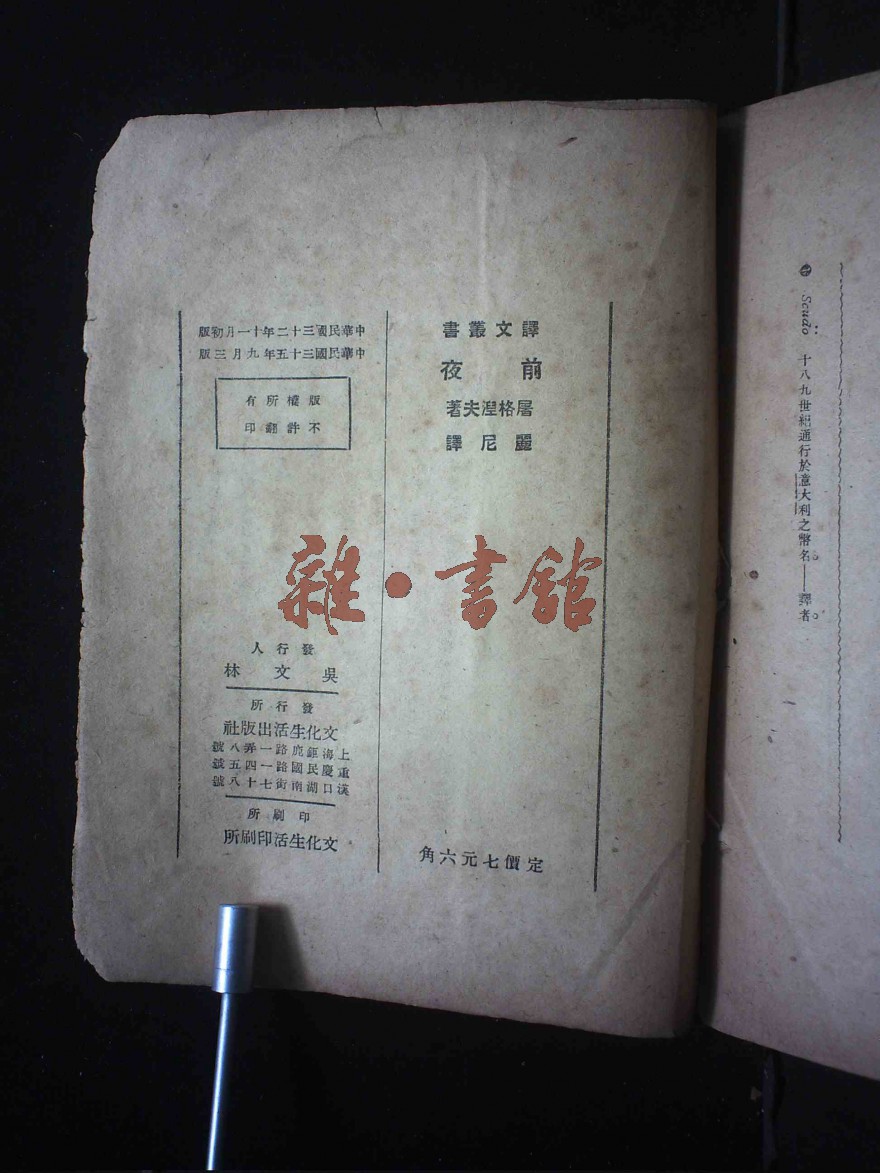 Scudo 十八九世紀通行於意大利之幣名——譯者。
譯文叢書
前夜
屠格湼夫著
麗尼譯
定價七元六角
中華民國三十二年十一月初版
中華民國三十五年九月三版
版權所有
不許翻印
發行人
吳文林
發行所
文化生活出版社
上海鉅鹿路一弄八號
重慶民國路一四五號
漢口湖南街七十八號
印刷所
文化生活印刷所
雜·書館